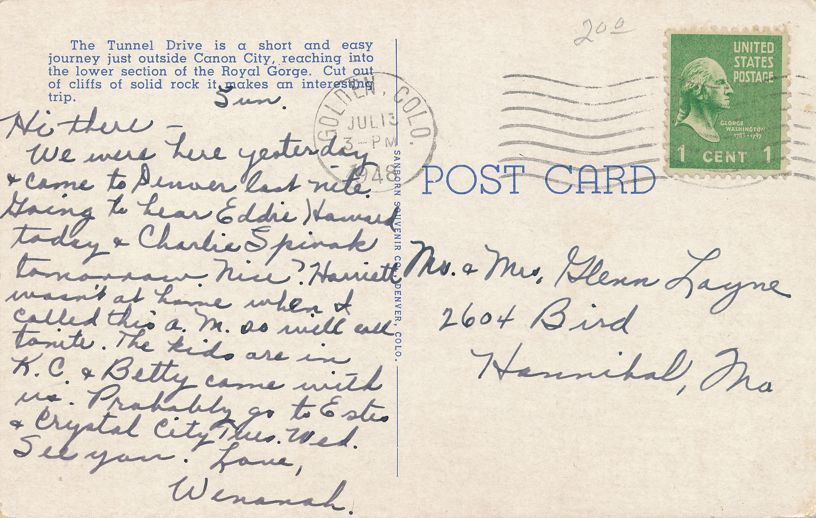 The Tunnel Drive is a short and easy
journey just outside Canon City, reaching into
the lower section of the Royal Gorge. Cut out
of cliffs of solid rock it makes an interesting
trip.
Sun.
Hi there –
We were here yesterday
& came to Denver last nite.
Going to hear Eddie Howard
today & Charlie Spivak
tomorrow. Nice? Harriett
wasn't at home when I
called this a.M. so will call
tonite. The kids are in
K.C. & Betty came with
us. Probably go to Estes
& Crystal City Tues. Wed.
See you. Love,
Wenonah.
SANBORN SOUVENIR CO., DENVER, COLO.
GOLDEN, COLO.
JUL 13
3-PM
1948
200
UNITED
STATES
POSTAGE
GEORGE
WASHINGTON
1 CENT 1
POST CARD
Mr. & Mrs. Glenn Layne
2604 Bird
Hannibal, Mo